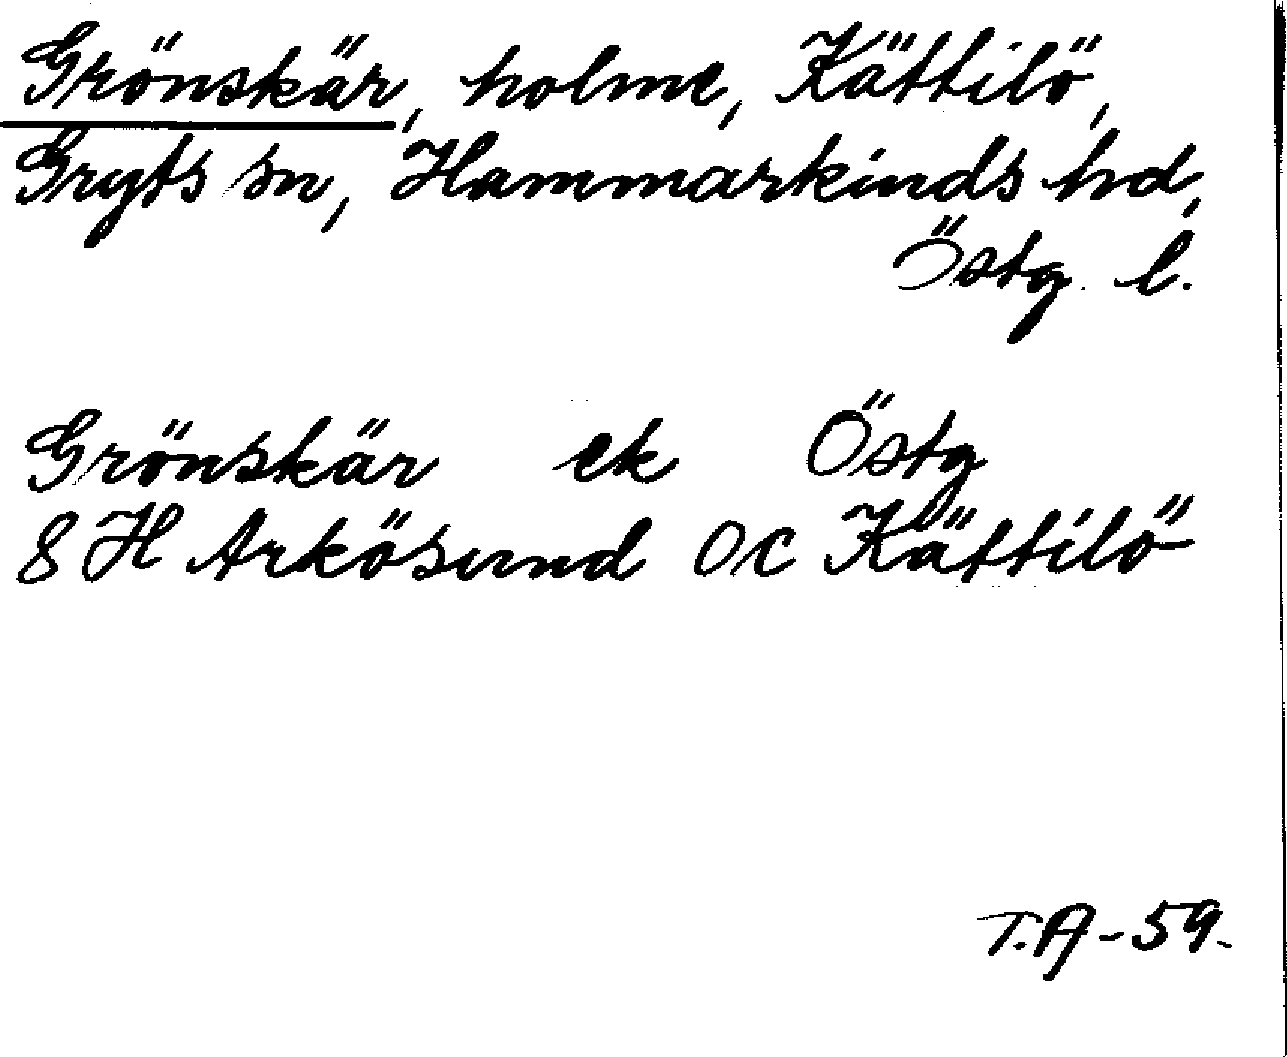 Grönskär, holme, Kättilö,
Gryts sn, Hammarkinds hd,
Östg. l.
Grönskär ek Östg
8 H Arkösund OC Kättilö
T.A-59.